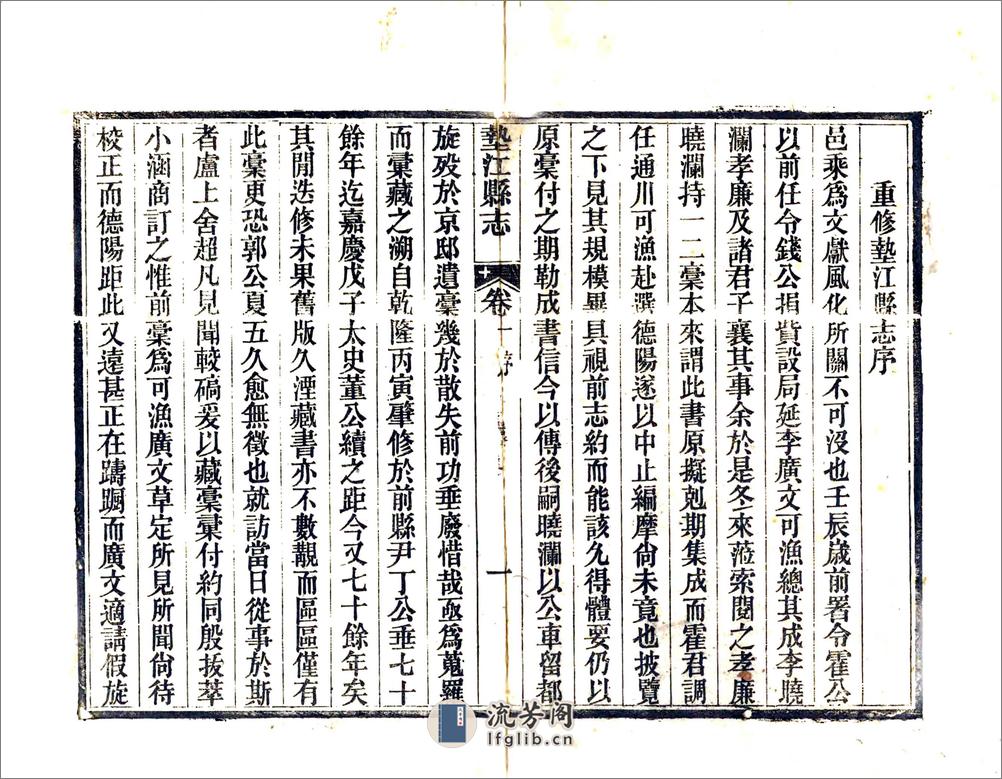 重修墊江縣志序
邑乘爲文獻風化所關不可沒也壬辰歲前署令霍公
以前任令錢公捐貲設局延李廣文可漁總其成李曉
瀾孝廉及諸君子襄其事余於是冬來蒞索閱之孝廉
曉瀾持一二稾本來謂此書原擬剋期集成而霍君調
任通川可漁赴選德陽遂以中止編摩尙未竟也披覽
之下見其規模畢具視前志約而能該允得體要仍以
原稾付之期勒成書信今以傳後嗣曉瀾以公車留都
墊江縣志 卷一 序 一
旋歿於京邸遺稾幾於散失前功垂廢惜哉亟爲蒐羅
而彙藏之溯自乾隆丙寅肇修於前縣尹丁公垂七十
餘年迄嘉慶戊子太史董公續之距今又七十餘年矣
其閒迭修未果舊版久湮藏書亦不數觀而區區僅有
此稾更恐郭公夏五久愈無徵也就訪當日從事於斯
者盧上舍超凡見聞較碻爰以藏稾彙付約同殷拔萃
小涵商訂之惟前稾爲可漁廣文草定所見所聞尙待
校正而德陽距此又遠甚正在躊躇而廣文適請假旋
流芳阁
lfglib.cn